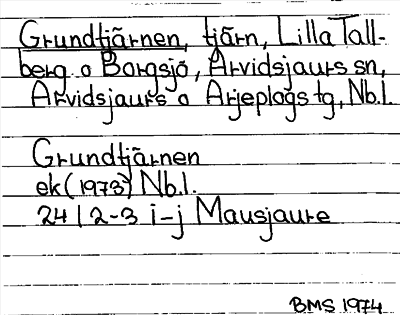 Grundtjärnen, tjärn, Lilla Tall-
berg o Borgsjö, Arvidsjaurs sn,
Arvidsjaurs o Arjeplogs tg, Nb.l.
Grundtjärnen
ek (1973) Nb.l.
24 I 2-3 i-j Mausjaure
BMS 1974